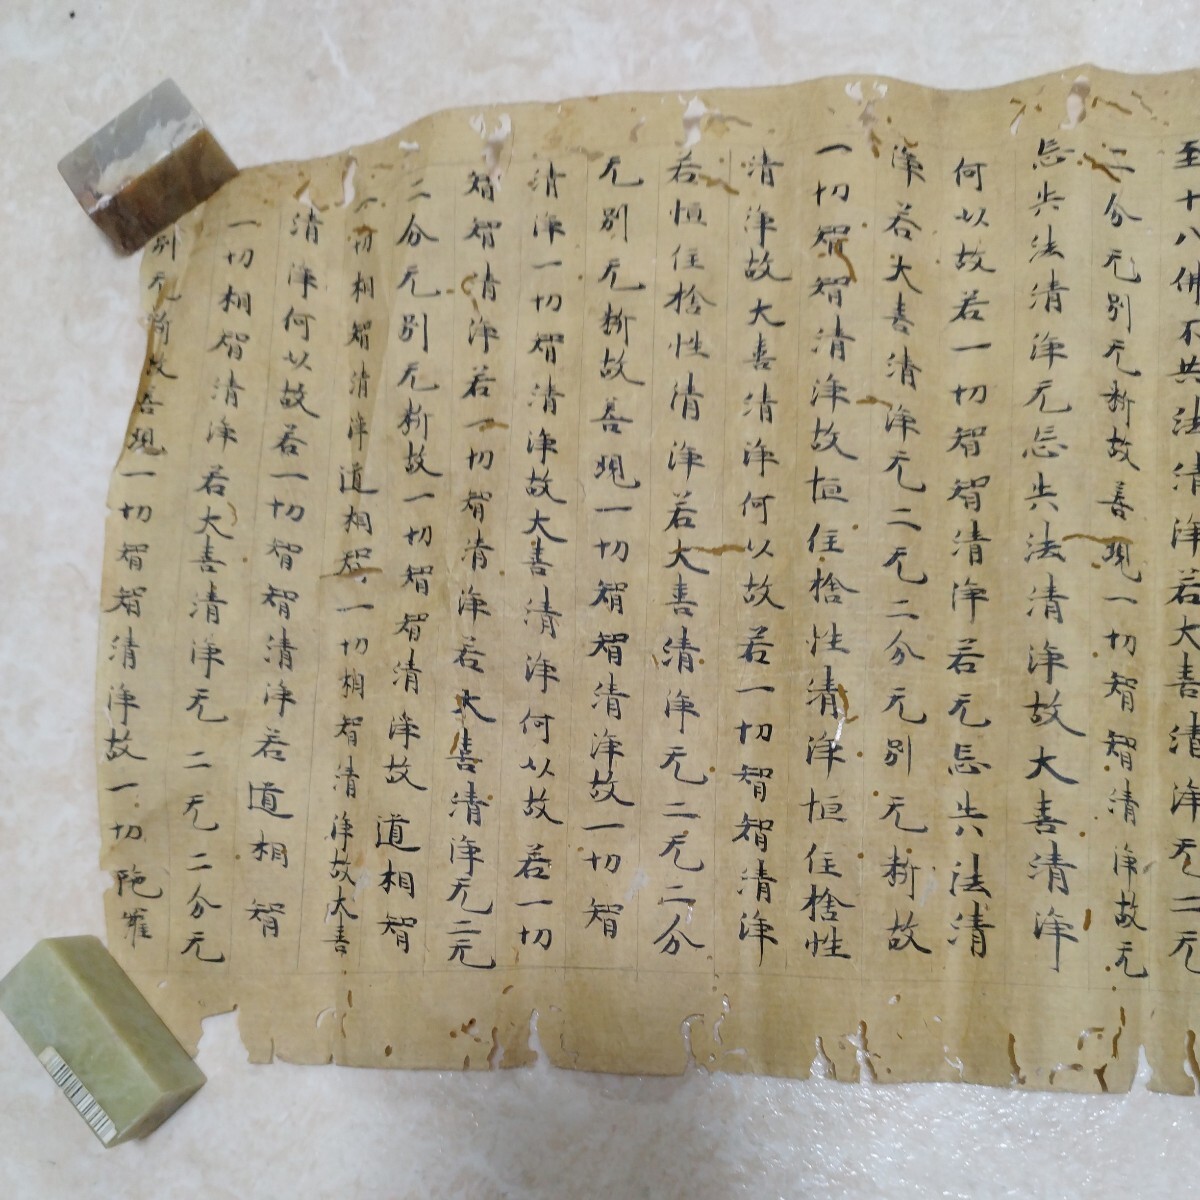 至十八佛不共法清淨若大喜清淨无二无
二分无別无断故善現一切智智清淨故无
忘失法清淨无忘失法清淨故大喜清淨
何以故若一切智智清淨若无忘失法清
淨若大喜清淨无二无二分无別无断故
一切智智清淨故恒住捨性清淨恒住捨性
清淨故大喜清淨何以故若一切智智清淨
若恒住捨性清淨若大喜清淨无二无二分
无別无断故善現一切智智清淨故一切智
清淨一切智清淨故大喜清淨何以故若一切
智智清淨若一切智清淨若大喜清淨无二无
二分无別无断故一切智智清淨故道相智
一切相智清淨道相智一切相智清淨故大喜
清淨何以故若一切智智清淨若道相智
一切相智清淨若大喜清淨无二无二分无
別无断故善現一切智智清淨故一切陁羅